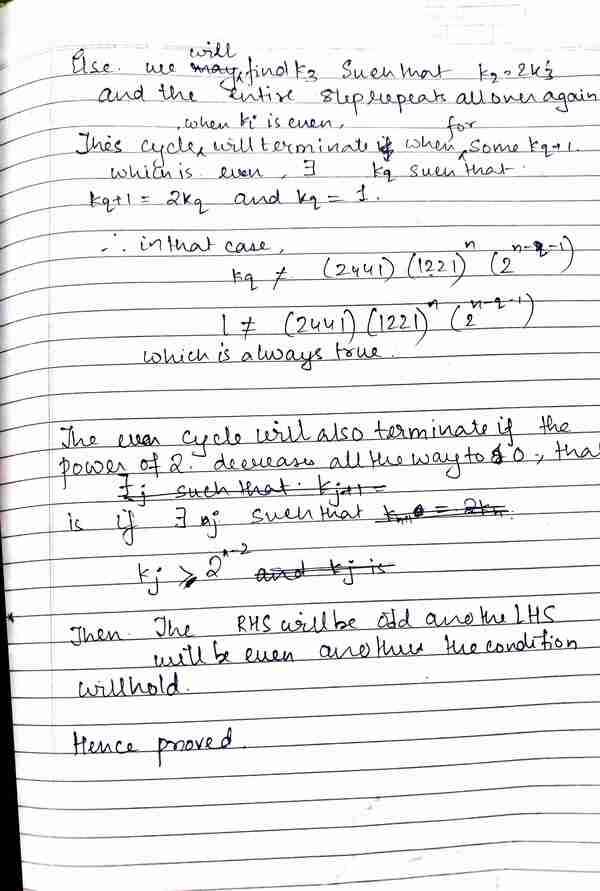 will
Else we may find k3 Such that k2 = 2k3
and the entire step repeats all over again
when ki is even, for
This cycle will terminate if when some kq+1
which is even, ∃ kq such that
kq+1 = 2kq and kq = 1.
∴ in that case,
kq ≠ (2441) (1221)^n (2^(n-q-1))
1 ≠ (2441) (1221)^n (2^(n-q-1))
which is always true.
The even cycle will also terminate if the
power of 2 decreases all the way to 0, that
∃ j such that kj+1 =
is if ∃ nj such that = 2kn
kj ≥ 2^(n-2) and kj is
Then The RHS will be odd and the LHS
will be even and thus the condition
will hold.
Hence proved.